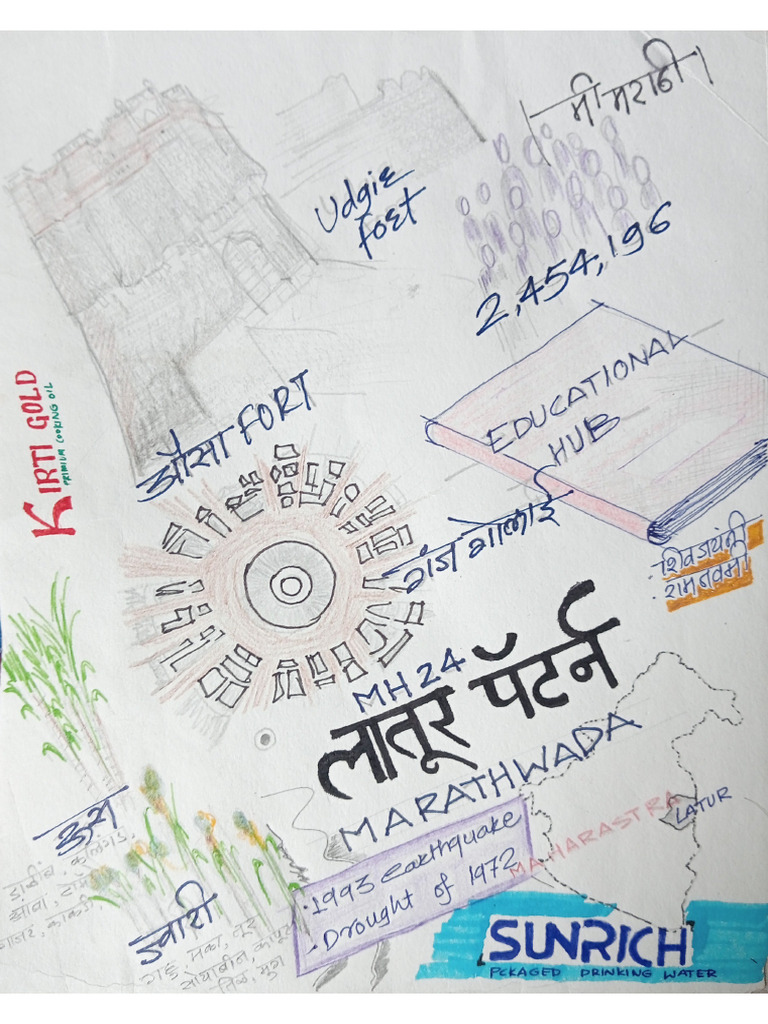 मी मराठी
Udgir
fort
2,454,196
KIRTI GOLD
PRIMIUM COOKING OIL
औसा FORT
EDUCATIONAL
HUB
गंज गोलाई
शिवजयंती
रामनवमी
MH 24
लातूर पॅटर्न
MARATHWADA
MAHARASTRA
LATUR
ऊस
डाळींब, कलिंगड,
आंबा,
गाजर, काकडी
ज्वारी
गहू, मका, तूर
सोयाबीन, कापूस
तिळ, मुग
1993 earthquake
Drought of 1972
SUNRICH
PCKAGED DRINKING WATER